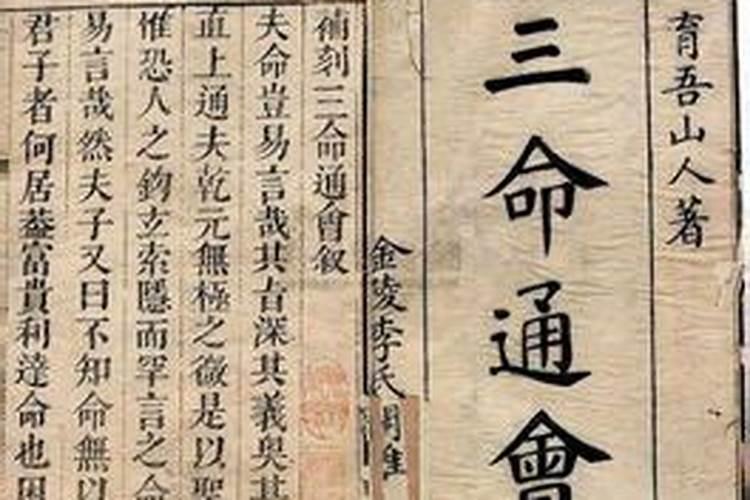 育吾山人著
三命通會
金陵李氏
補刻三命通會叙
夫命豈易言哉其旨深其義奥其
直上通夫乾元無極之微是以聖
惟恐人之鈎玄索隱而罕言之命
易言哉然夫子又曰不知命無以
君子者何居葢富貴利達命也因